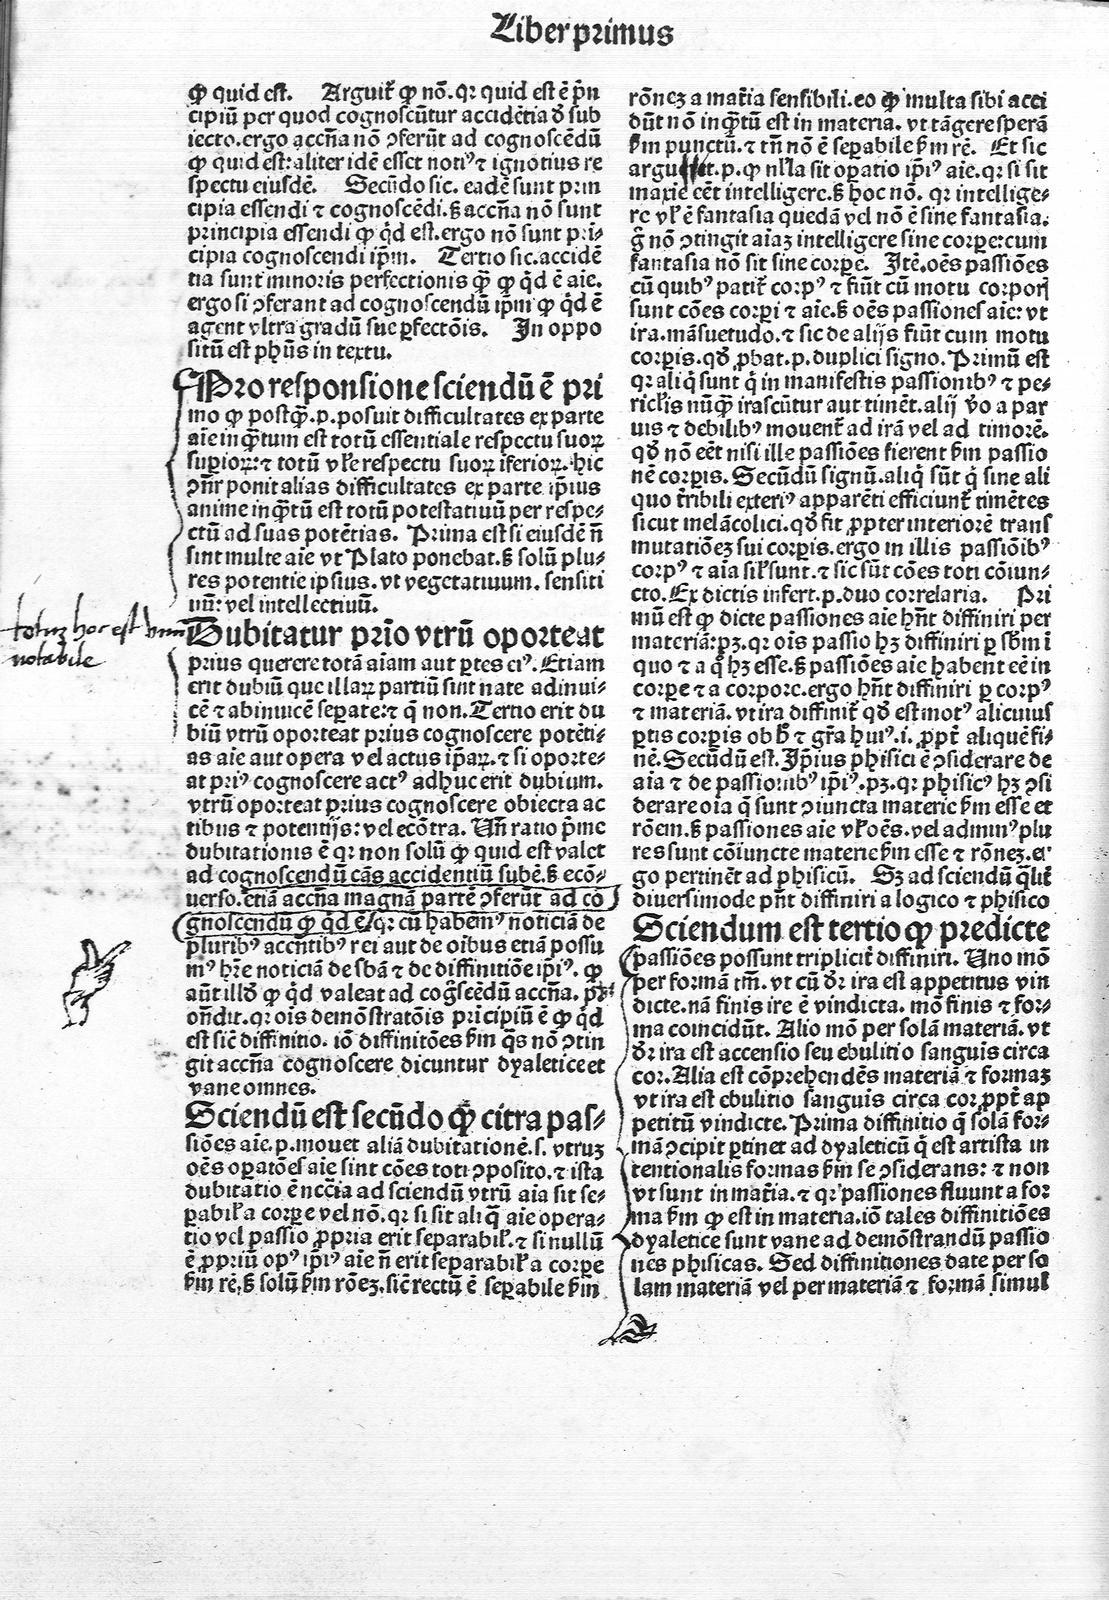 Liber primus
ꝙ quid est. Arguit̄ ꝙ nō. qꝛ quid est ē p̄n
cipiū per quod cognoscūtur accidētia ð sub
iecto. ergo accn̄a nō ꝯferūt ad cognoscēdū
ꝙ quid est: aliter idē esset notiꝰ ⁊ ignotius re
spectu eiusdē. Secūdo sic. eadē sunt prin
cipia essendi ⁊ cognoscēdi. ꝟ accn̄a nō sunt
principia essendi ꝙ qͥd est. ergo nō sunt pri⸗
cipia cognoscendi ip̄m. Tertio sic. accidē
tia sunt minoris perfectionis qꝫ̄ ꝙ qͥd ē aīe.
ergo si ꝯferant ad cognoscendū ip̄m ꝙ qͥd ē
agent vltra gradū sue ꝑfectōis. In oppo
sitū est ph̄us in textu.
Pro responsione sciendū ē pri
mo ꝙ postqꝫ̄. p. posuit difficultates ex parte
aīe inqꝫ̄tum est totū essentiale respectu suoꝝ
supioꝝ: ⁊ totū vl̄e respectu suoꝝ īferioꝝ. hic
ꝯn̄r ponit alias difficultates ex parte ip̄ius
anime inqꝫ̄tū est totū potestatiuū per respe⸗
ctū ad suas potētias. Prima est si eiusdē n̄
sint multe aīe vt Plato ponebat. ꝟ solū plu⸗
res potentie ipsius. vt vegetatiuum. sensiti
uū: vel intellectiuū.
totuz hoc est vnū
notabile
Dubitatur prīo vtrū oporteat
prius querere totā aīam aut ꝑtes eiꝰ. Etiam
erit dubiū que illaꝝ partiū sint nate adinui⸗
cē ⁊ abinuicē sepate: ⁊ q̄ non. Tertio erit du
biū vtrū oporteat prius cognoscere potēti⸗
as aīe aut opera vel actus ip̄aꝝ. ⁊ si oporte⸗
at priꝰ cognoscere actꝰ adhuc erit dubium.
vtrū oporteat prius cognoscere obiecta ac
tibus ⁊ potentijs: vel ecōtra. Un̄ ratio p̄me
dubitationis ē qꝛ non solū ꝙ quid est valet
ad cognoscendū cās accidentiū subē. ꝟ ecō⸗
uerso. etiā accn̄a magnā partē ꝯferūt ad co
gnoscendū ꝙ qͥd ē/qꝛ cū habemꝰ noticiā de
pluribꝰ accn̄tibꝰ rei aut de oībus etiā possu
mꝰ hr̄e noticiā de sbā ⁊ de diffinitiōe ip̄iꝰ. ꝙ
aūt illð ꝙ qͥd valeat ad coḡscēdū accn̄a. pꝫ
on̄dit. qꝛ oīs demōstratōis prīcipiū ē ꝙ qͥd
est sic̄ diffinitio. iō diffinitōes s̄m q̄s nō ꝯtin
git accn̄a cognoscere dicuntur dyaletice et
vane omnes.
Sciendū est secūdo ꝙ citra pas⸗
siōes aīe. p. mouet aliā dubitationē. s. vtruz
oēs oꝑatōes aīe sint cōes toti ꝯposito. ⁊ ista
dubitatio ē nccīa ad sciendū vtrū aīa sit se⸗
ꝑabil̄ a corpe vel nō. qꝛ si sit aliq̄ aīe opera⸗
tio vel passio ꝓpria erit separabil̄. ⁊ si nullū
ē ꝓpriū opꝰ ip̄iꝰ aīe n̄ erit separabil̄ a corpe
s̄m rē. ꝟ solū s̄m rōez. sic̄ rectū ē sepabile s̄m
rōnez a mat̄ia sensibili. eo ꝙ multa sibi acci
dūt nō inqꝫ̄tū est in materia. vt tāgere sperā
s̄m punctū. ⁊ tn̄ nō ē sepabile s̄m rē. Et sic
arguit. p. ꝙ nl̄la sit opatio ip̄iꝰ aīe. qꝛ si sit
maxīe eēt intelligere. ꝟ hoc nō. qꝛ intellige⸗
re vl̄ ē fantasia quedā vel nō ē sine fantasia.
g̊ nō ꝯtingit aīaz intelligere sine corpe: cum
fantasia nō sit sine corpe. Itē. oēs passiōes
cū quibꝰ patit̄ corpꝰ ⁊ fiūt cū motu corporꝭ
sunt cōes corpi ⁊ aīe. ꝟ oēs passiones aīe: vt
ira. māsuetudo. ⁊ sic de alijs fiūt cum motu
corpis. qð ꝓbat. p. duplici signo. Primū est
qꝛ aliq̄ sunt q̄ in manifestis passionibꝰ ⁊ pe⸗
ricl̄is nūqꝫ̄ irascūtur aut timēt. alij ꝟo a par
uis ⁊ debilibꝰ mouent̄ ad irā vel ad timorē.
qð nō eēt nisi ille passiōes fierent s̄m passio
nē corpis. Secūdū signū. aliq̄ sūt q̄ sine ali
quo t̄ribili exteriꝰ apparēti efficiunt̄ timētes
sicut melācolici. qð fit ꝓpter interiorē trans
mutatiōez sui corpis. ergo in illis passiōibꝰ
corpꝰ ⁊ aīa sil̄ sunt. ⁊ sic sūt cōes toti cōiun⸗
cto. Ex dictis infert. p. duo correlaria. Pri
mū est ꝙ dicte passiones aīe hn̄t diffiniri per
materiā: pꝫ. qꝛ oīs passio hꝫ diffiniri ꝑ sb̄m ī
quo ⁊ a q̊ hꝫ esse. ꝟ passiōes aīe habent eē in
corpe ⁊ a corpore. ergo hn̄t diffiniri ꝑ corpꝰ
⁊ materiā. vt ira diffinit̄ qð est motꝰ alicuius
ꝑtis corpis ob h̄ ⁊ gr̄a huiꝰ. i. ꝓpt̄ aliquē fi⸗
nē. Secūdū est. Ip̄ius phisici ē ꝯsiderare de
aīa ⁊ de passionibꝰ ip̄iꝰ. pꝫ. qꝛ phisicꝰ hꝫ ꝯsi
derare oīa q̄ sunt ꝯiuncta materie s̄m esse et
rōem. ꝟ passiones aīe vl̄ oēs. vel adminꝰ plu
res sunt cōiuncte materie s̄m esse ⁊ rōnez. er
go pertinēt ad phisicū. Sꝫ ad sciendū q̄lit̄
diuersimode pn̄t diffiniri a logico ⁊ phisico
Sciendum est tertio ꝙ predicte
passiōes possunt triplicit̄ diffiniri. Uno mō
per formā tm̄. vt cū ðr ira est appetitus vin
dicte. nā finis ire ē vindicta. mō finis ⁊ for⸗
ma coincidūt. Alio mō per solā materiā. vt
ðr ira est accensio seu ebulitio sanguis circa
cor. Alia est cōprehendēs materiā ⁊ formaz
vt ira est ebulitio sanguis circa cor ꝓpt̄ ap
petitū vindicte. Prima diffinitio q̄ solā for⸗
mā ꝯcipit ꝑtinet ad dyaleticū q̄ est artista in
tentionalis formas s̄m se ꝯsiderans: ⁊ non
vt sunt in mat̄ia. ⁊ qꝛ passiones fluunt a for
ma s̄m ꝙ est in materia. iō tales diffinitiōes
dyaletice sunt vane ad demōstrandū passio
nes phisicas. Sed diffinitiones date per so
lam materiā vel per materiā ⁊ formā simul